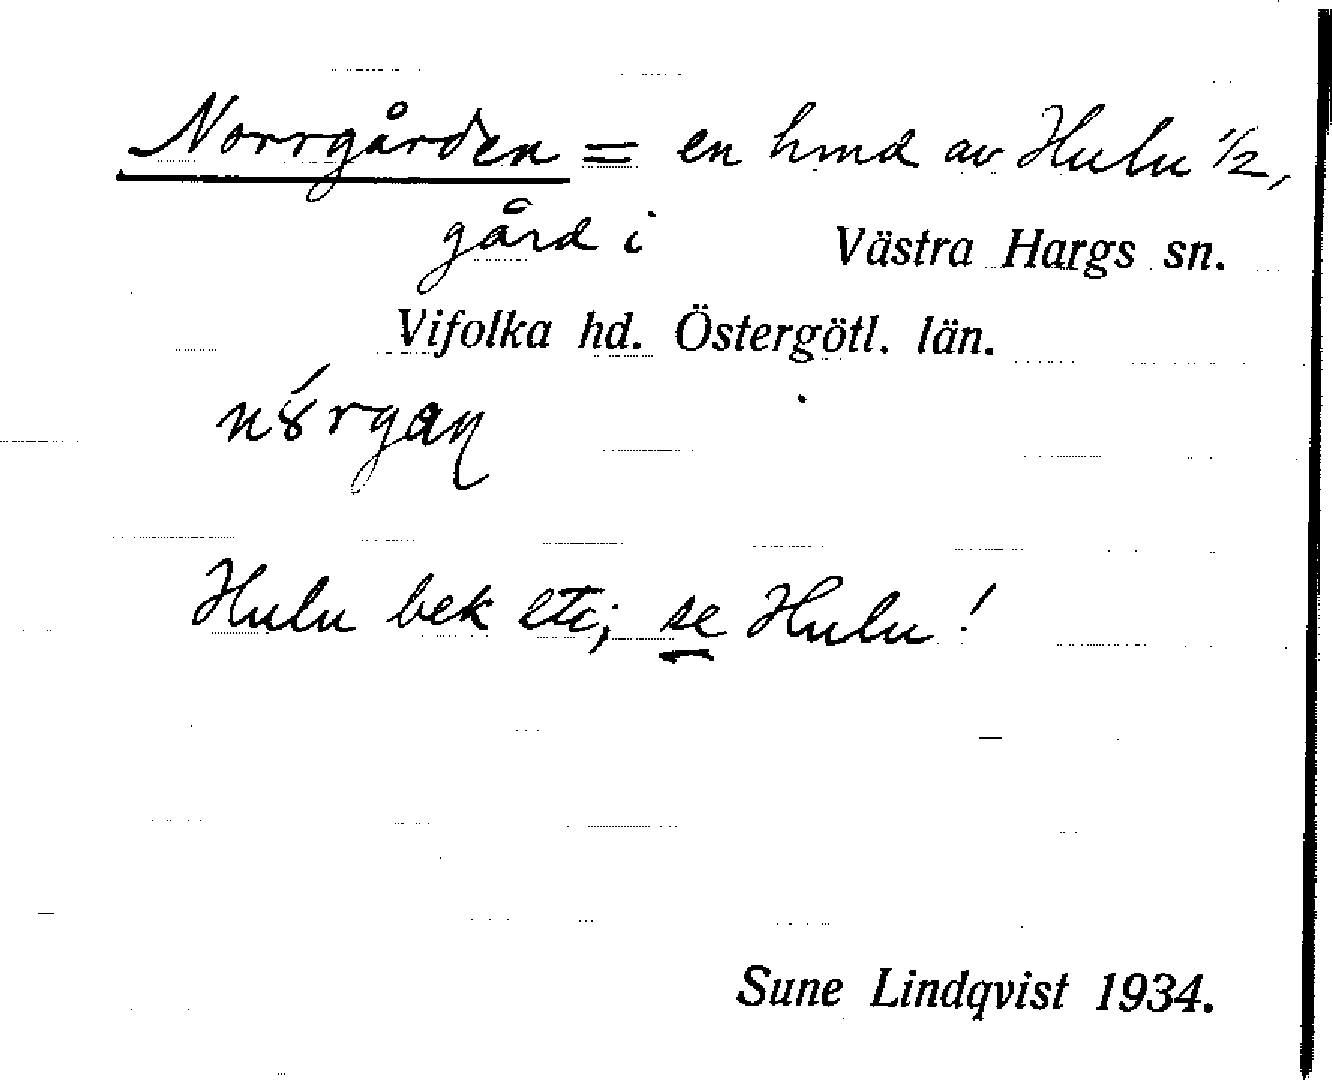 Norrgården = en hmd av Hulu 1/2,
gård i Västra Hargs sn.
Vifolka hd. Östergötl. län.
Hulu bek etc; se Hulu!
Sune Lindqvist 1934.